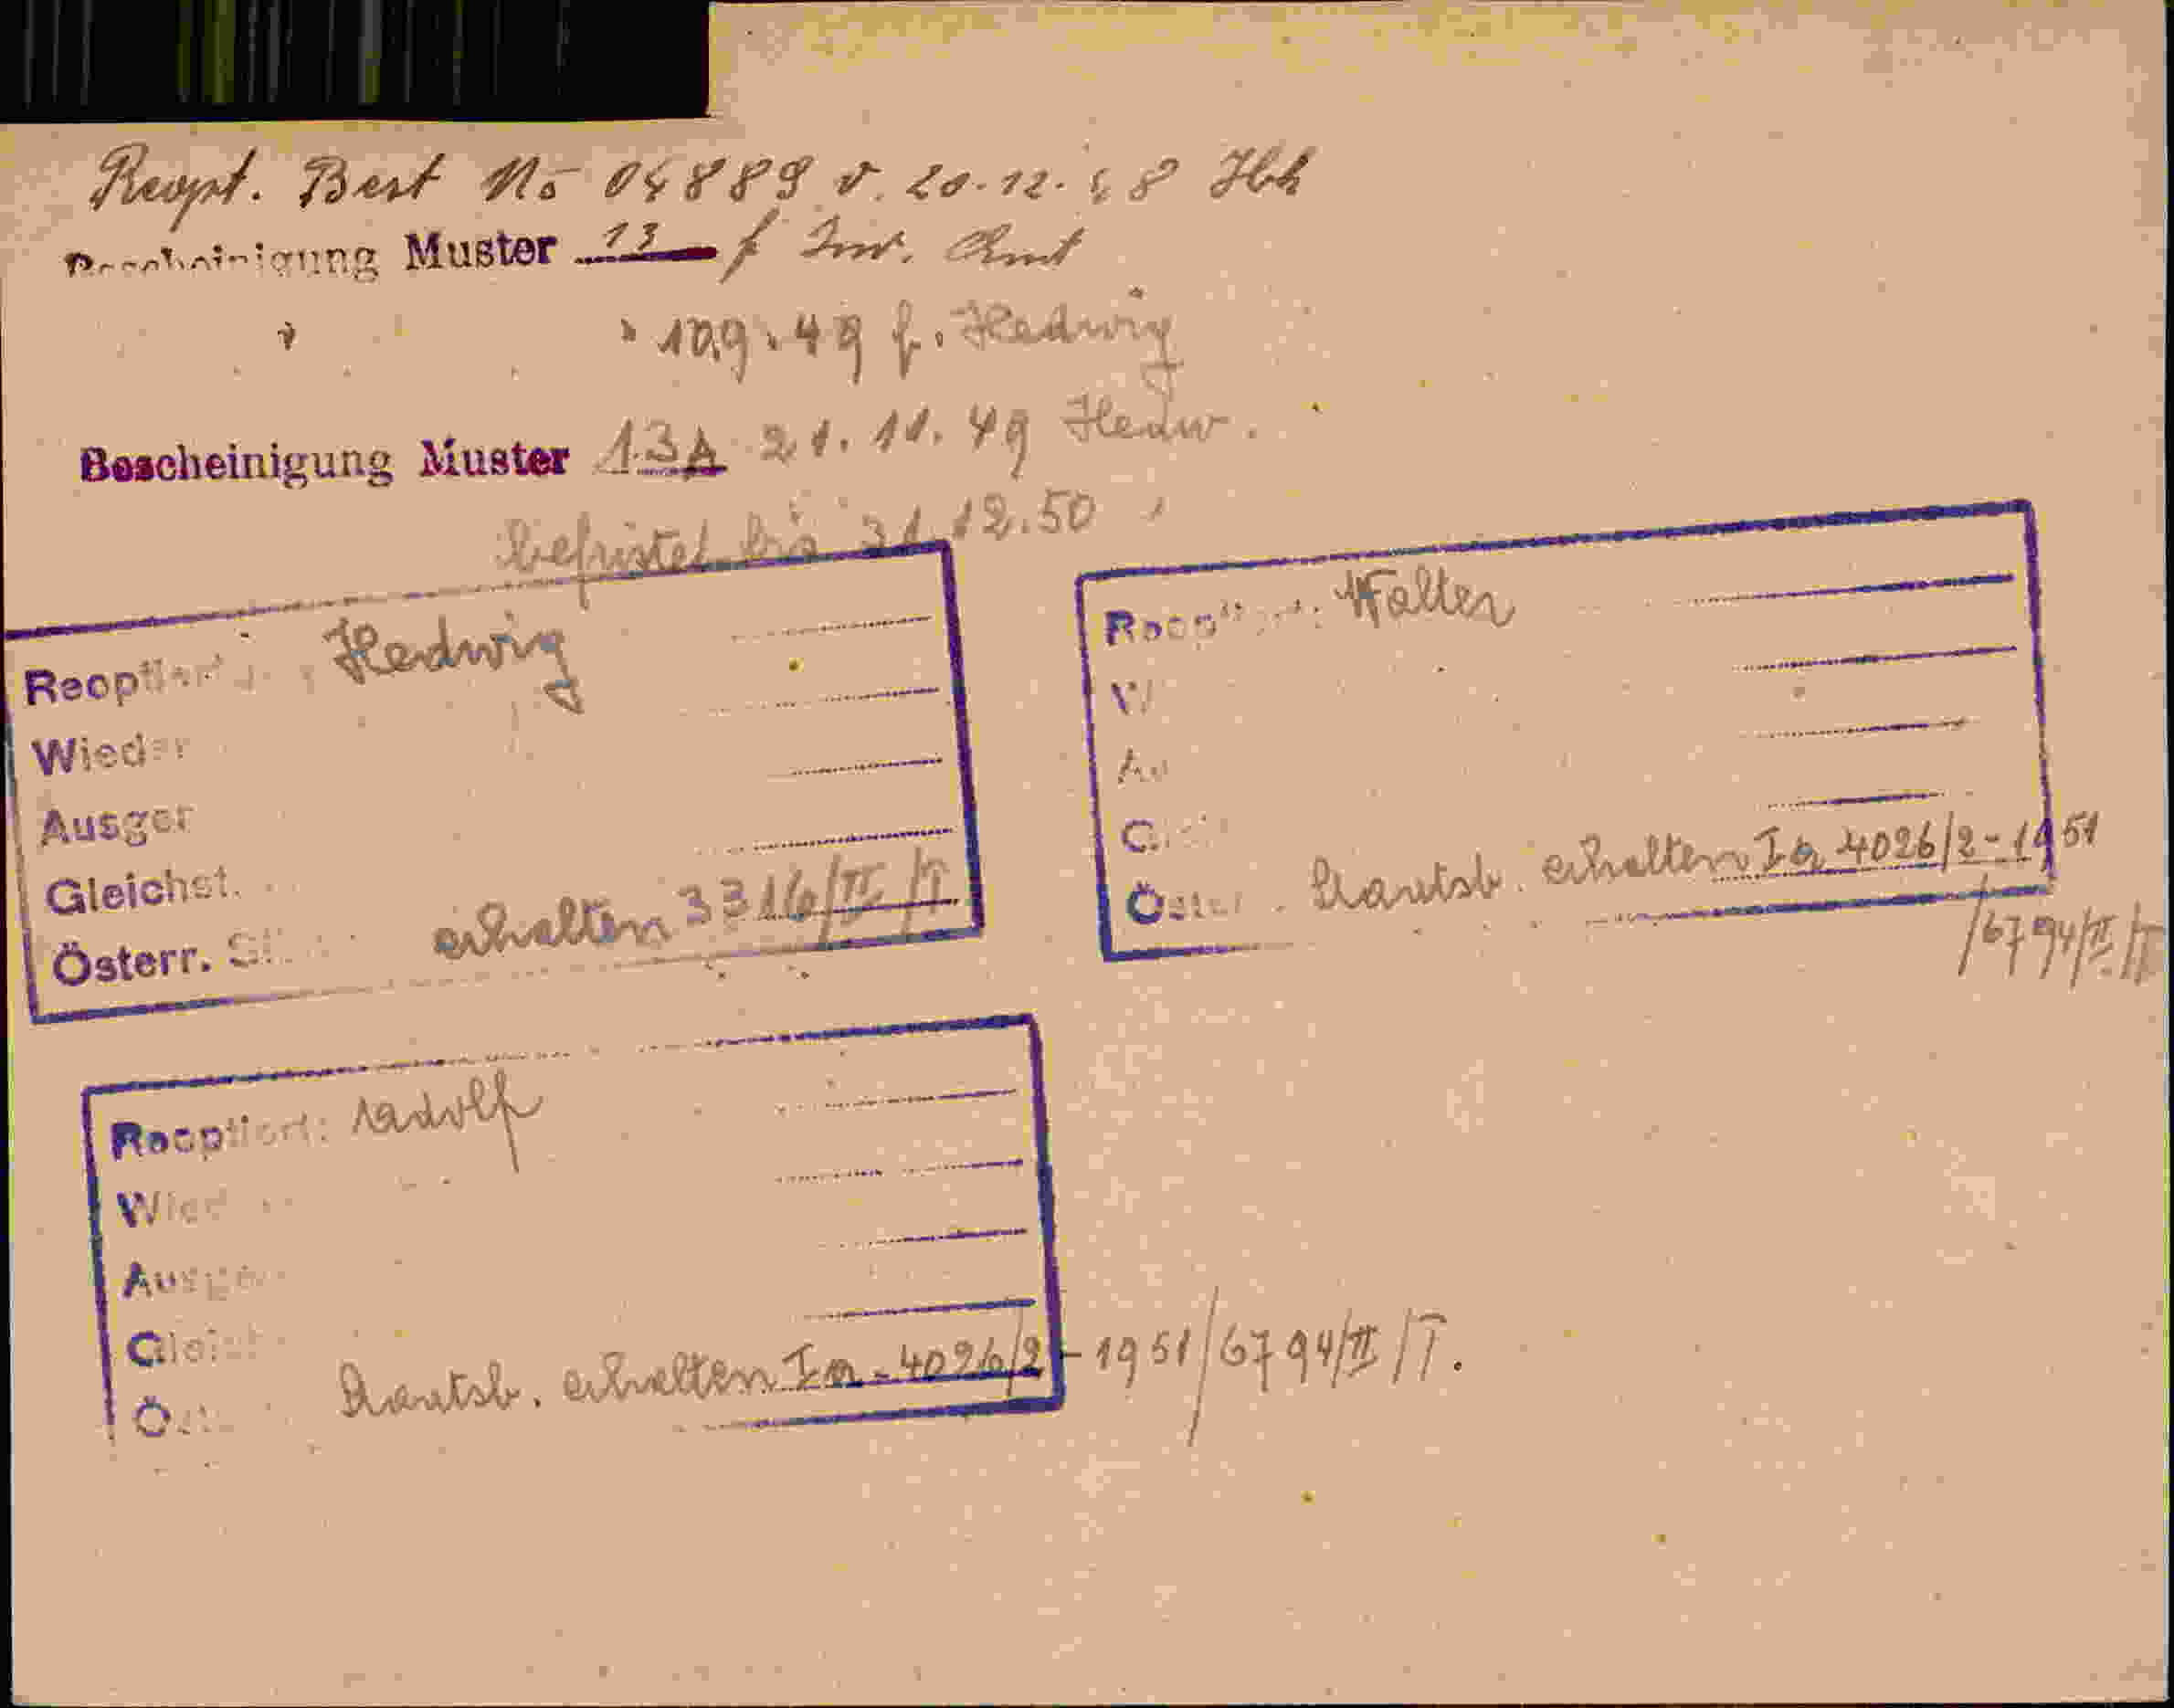 Reopt. Best No 04889 v. 20.12.48 Hbh
Bescheinigung Muster 13 f Inv. Amt
" " 10.9.49 f. Hedwig
Bescheinigung Muster 13A 21.11.49 Hedw.
befristet bis 31.12.50
Reoptiert: Hedwig
Wieder
Ausger
Gleichst.
Österr. St erhalten 3316/II/T
Reoptiert: Walter
W
Au
Gleich
Österr. Staatsb. erhalten Ia 4026/2-1951
/6794/II/T
Reoptiert: Adolf
Wied
Ausge
Gleich
Öst Staatsb. erhalten Ia-4026/2-1951/6794/II/T.